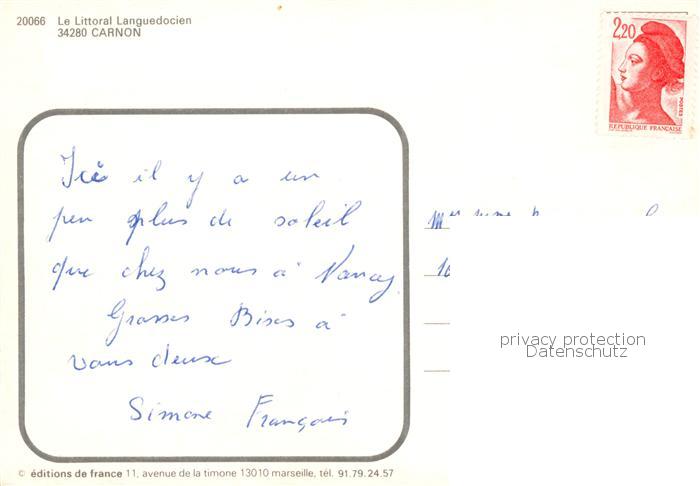 20066 Le Littoral Languedocien
34280 CARNON
2,20
POSTES
REPUBLIQUE FRANÇAISE
Ici il y a un
peu plus de soleil
que chez nous à Nancy
Grosses Bises à
vous deux
Simone François
10
privacy protection
Datenschutz
© éditions de france 11, avenue de la timone 13010 marseille, tél. 91.79.24.57